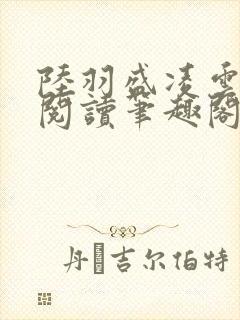 陸羽盛凌雲
閱讀筆趣閣
丹吉尔伯特